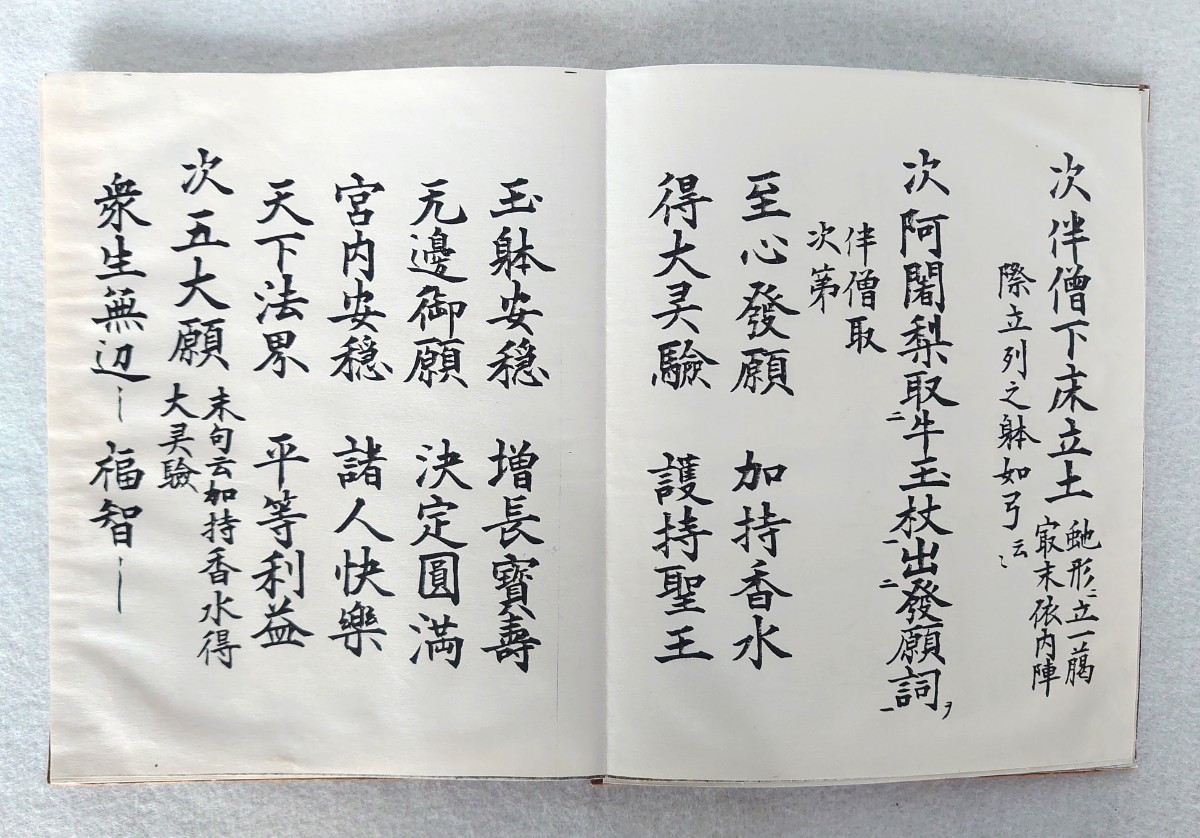 次伴僧下床立土 虵形ニ立一﨟
㝡末依内陣
際立列之躰如弓云ミ
次阿闍梨取二牛玉杖一出二發願詞一ヲ
伴僧取
次第
至心發願 加持香水
得大灵驗 護持聖王
玉躰安穏 增長寶壽
无邊御願 決定圓満
宮内安穏 諸人快樂
天下法界 平等利益
次五大願 末句云加持香水得
大灵驗
衆生無辺〻 福智〻